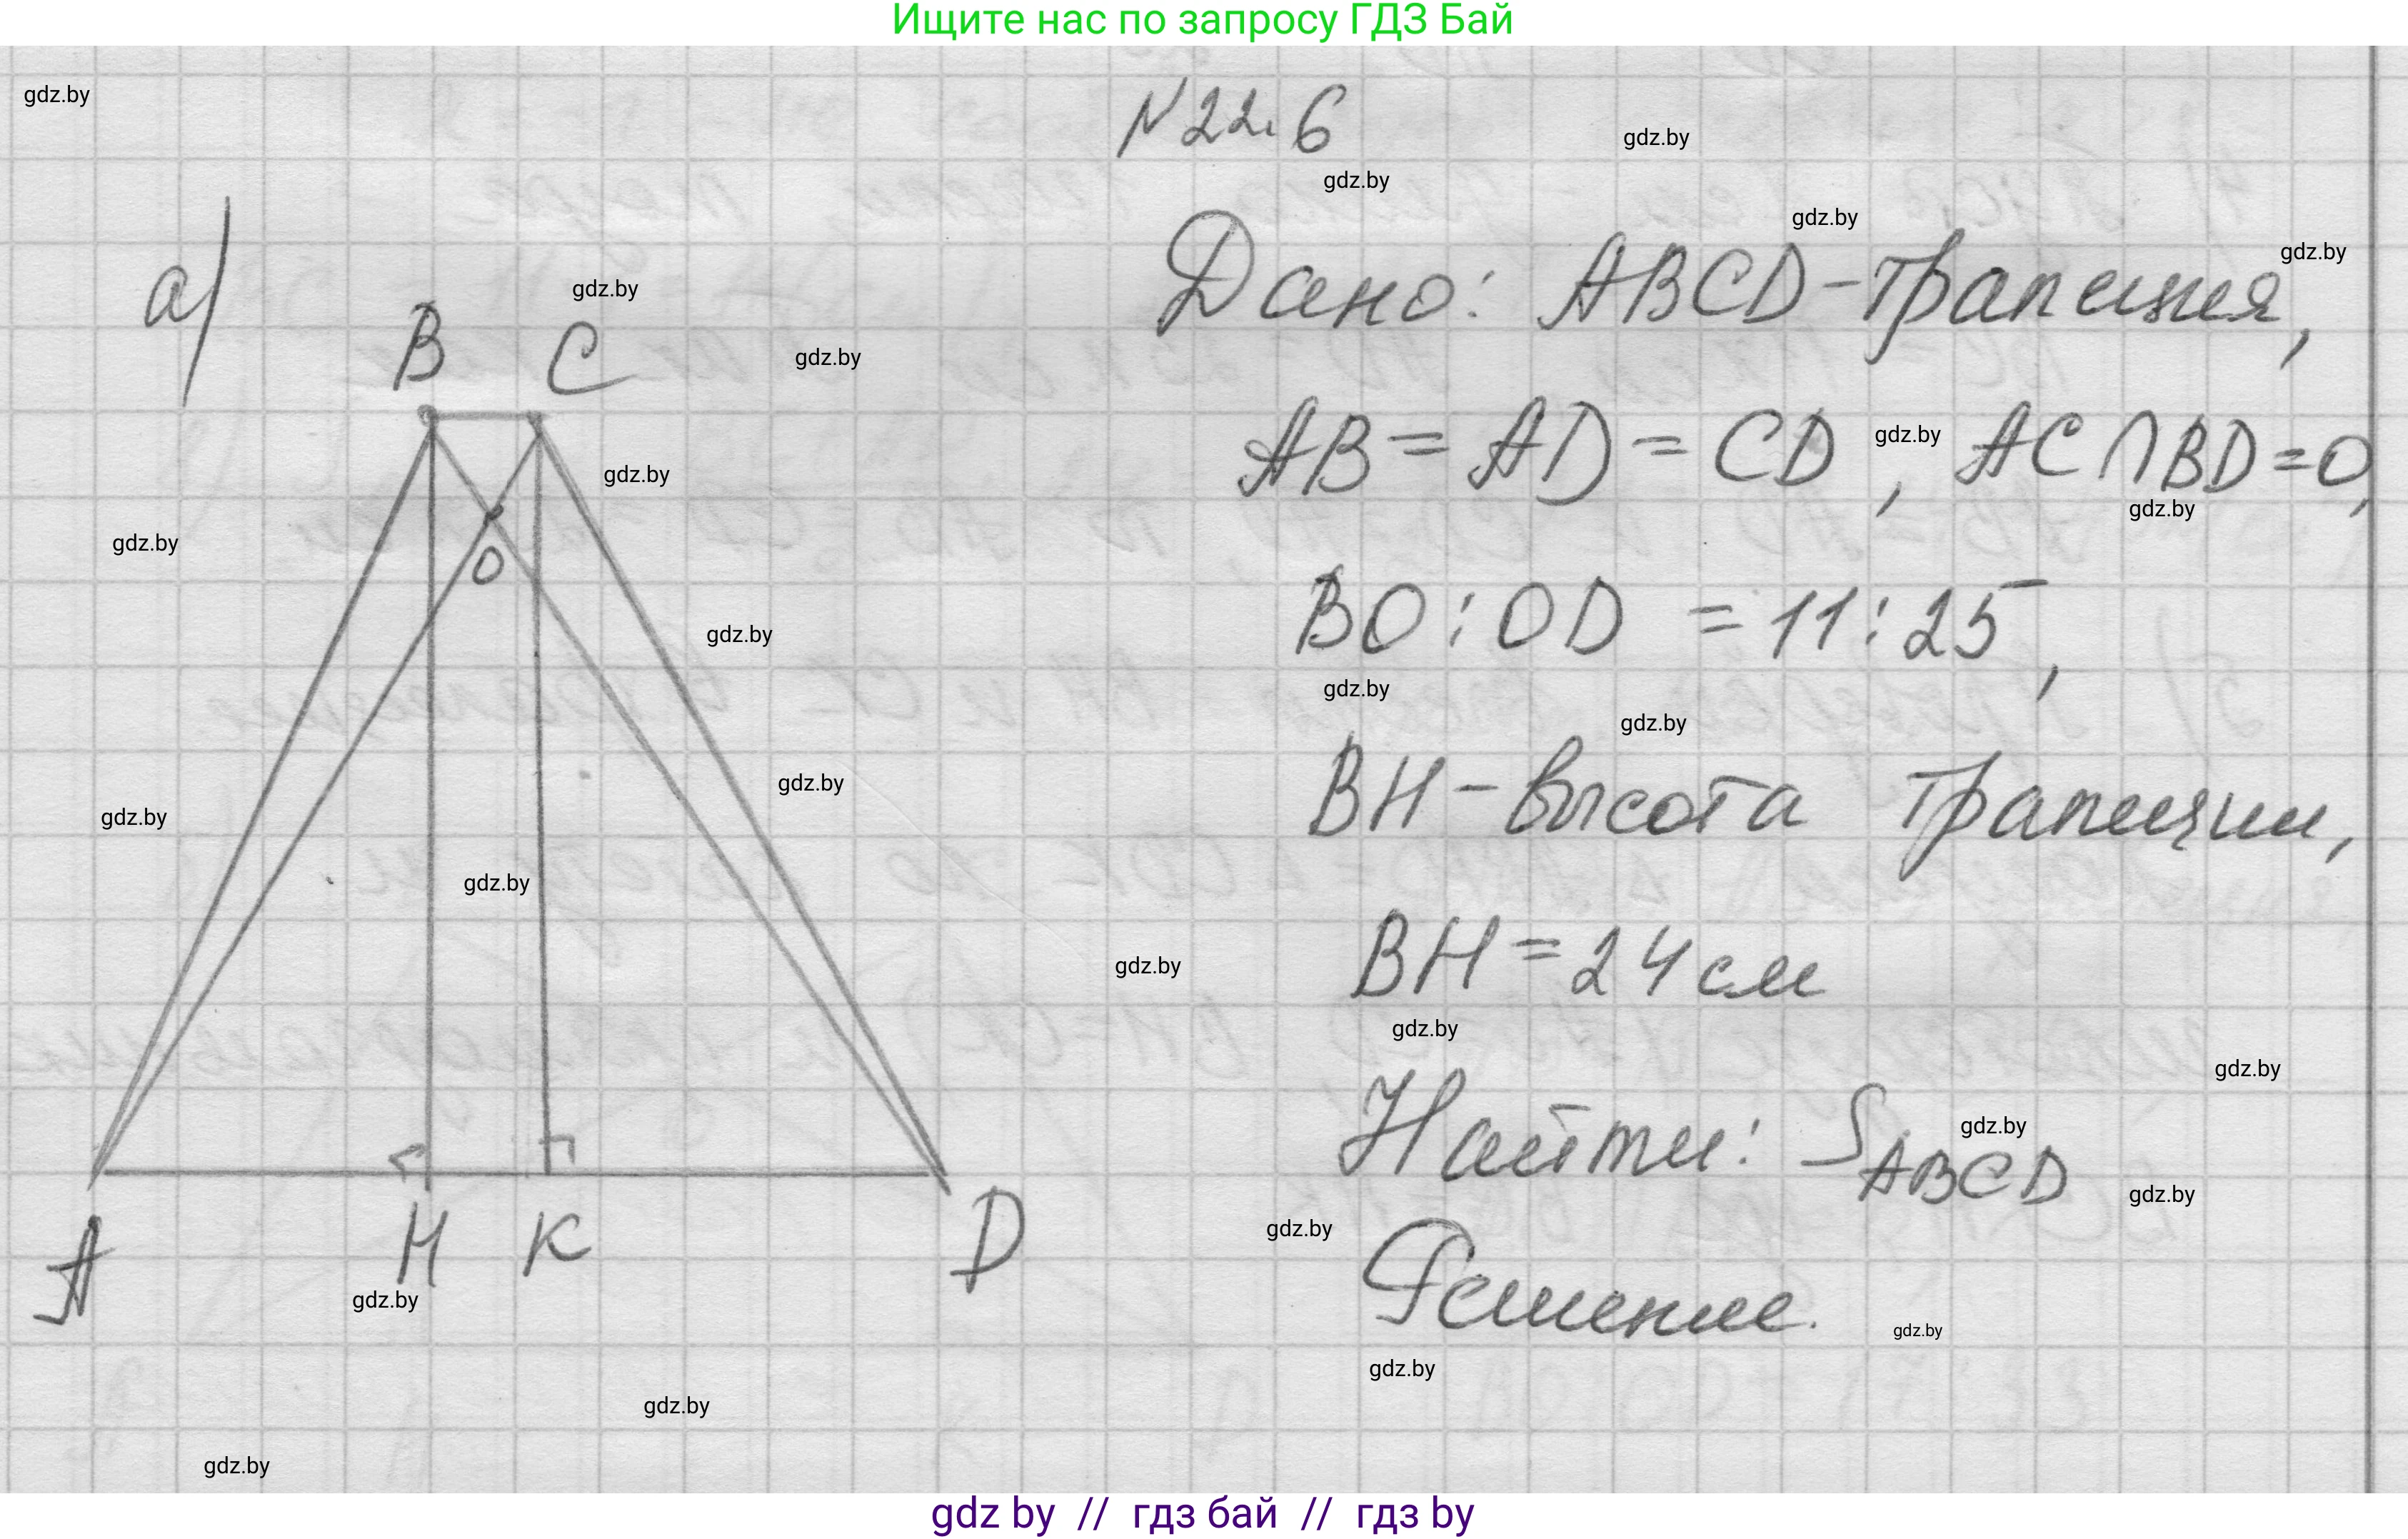 Ищите нас по запросу ГДЗ Бай
gdz.by
N 22.6
gdz.by
gdz.by
gdz.by
gdz.by
а)
gdz.by
Дано: ABCD-трапеция,
B C
gdz.by
AB = AD = CD, AC ∩ BD = O,
gdz.by
gdz.by
gdz.by
gdz.by
O
BO : OD = 11 : 25,
gdz.by
gdz.by
gdz.by
BH - высота трапеции,
gdz.by
gdz.by
gdz.by
BH = 24 см
gdz.by
gdz.by
gdz.by
Найти: S ABCD
gdz.by
gdz.by
gdz.by
A H K D
Решение.
gdz.by
gdz.by
gdz.by
gdz.by
gdz.by
gdz by // гдз бай // гдз by